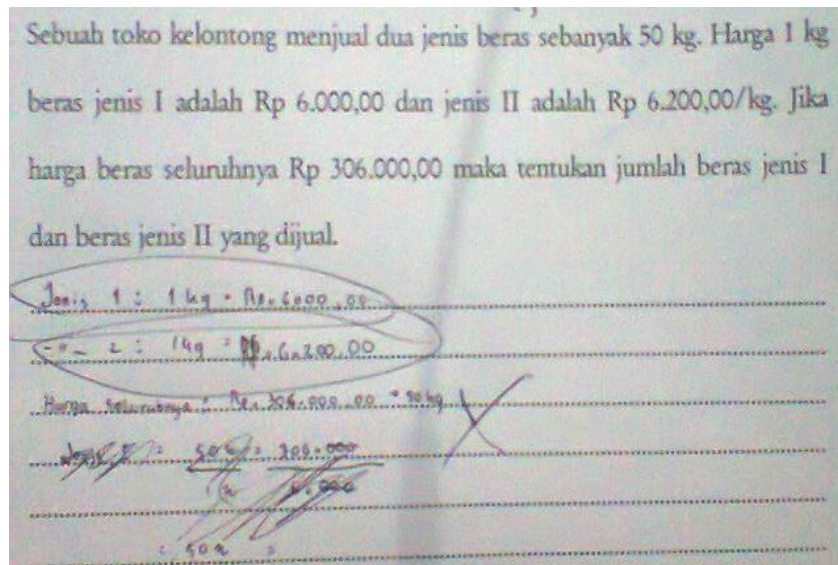 Sebuah toko kelontong menjual dua jenis beras sebanyak 50 kg. Harga 1 kg
beras jenis I adalah Rp 6.000,00 dan jenis II adalah Rp 6.200,00/kg. Jika
harga beras seluruhnya Rp 306.000,00 maka tentukan jumlah beras jenis I
dan beras jenis II yang dijual.
Jenis 1 : 1 kg = Rp. 6000,00
-"- 2 : 1 kg = Rp. 6.200.00
Harga seluruhnya : Rp. 306.000.00 = 50 kg
= 50 =
6.000
: 50